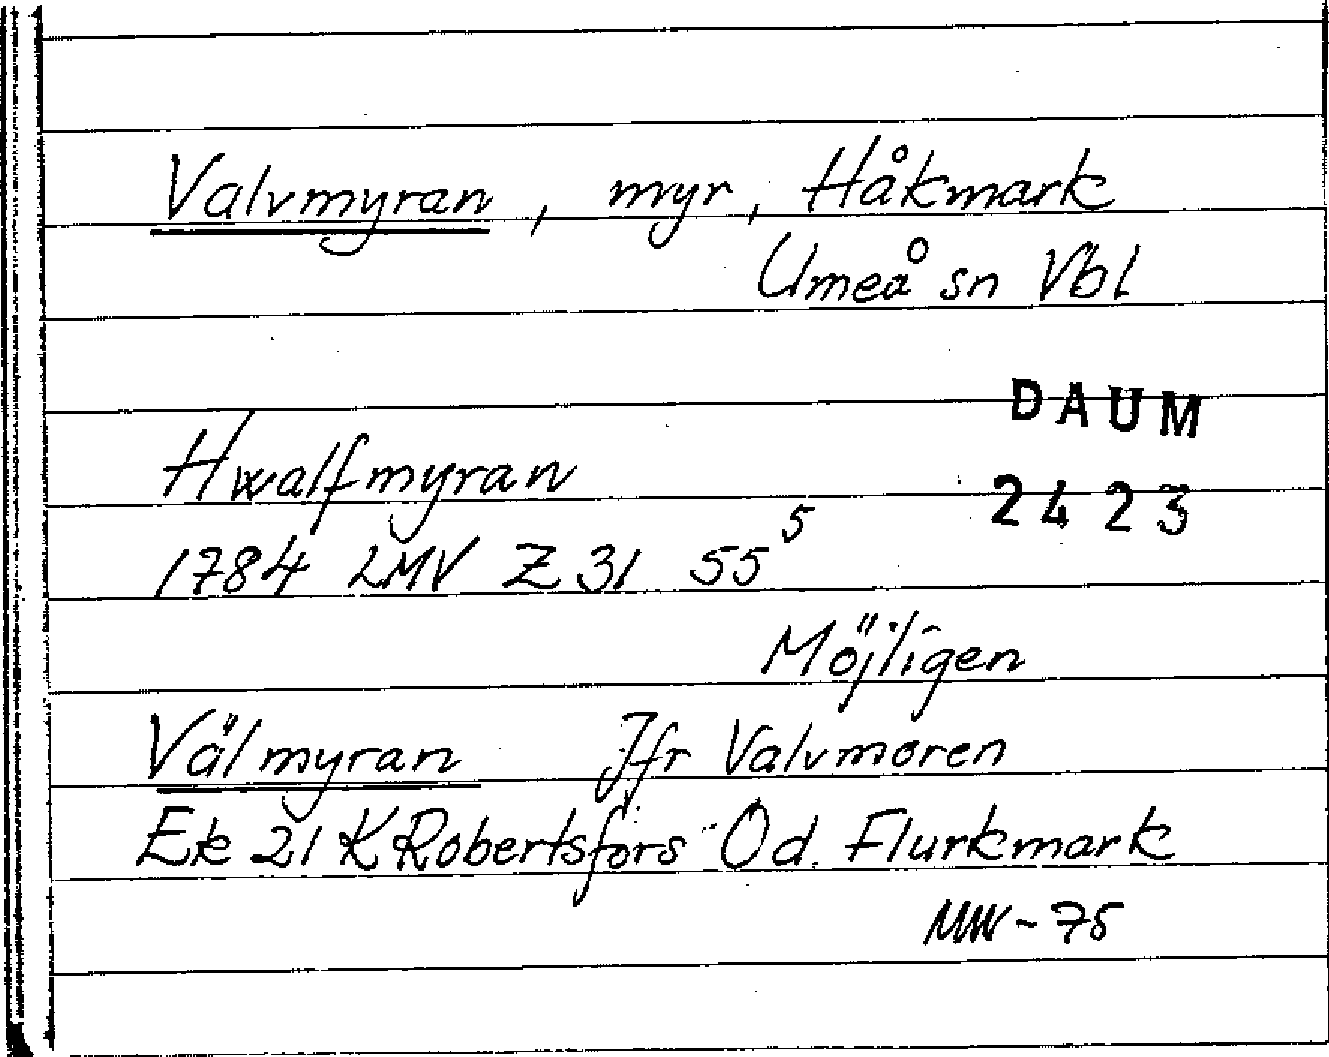 Valvmyran, myr, Håkmark
Umeå sn Vbl
DAUM
2423
Hwalfmyran
1784 LMV Z 31 55⁵
Möjligen
Välmyran Jfr Valvmoren
Ek 21 K Robertsfors Öd. Flurkmark
MW-75